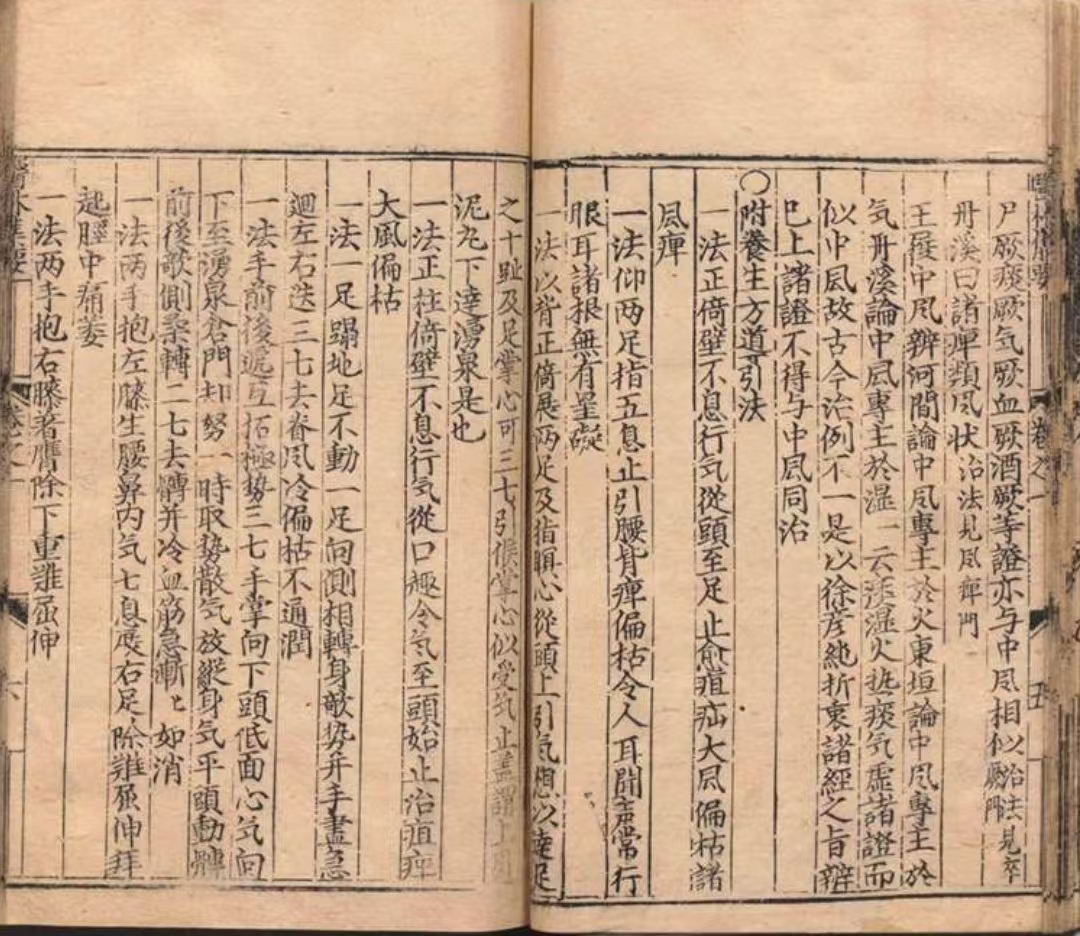 尸厥痰厥気厥血厥酒厥等證亦与中風相似治法見卒厥門
丹溪曰諸痺類風状治法見風痺門
王履中風辨河間論中風專主於火東垣論中風專主於
気丹溪論中風專主於湿一云痰湿火挾痰気虚諸證而
似中風故古今治例不一是以徐彦純折衷諸經之旨辨
巳上諸證不得与中風同治
〇附養生方道引法
一法正倚壁不息行気從頭至足止愈疽疝大風偏枯諸
風痺
一法仰両足指五息止引腰背痺偏枯令人耳聞声常行
眼耳諸根無有罣礙
一法以背正倚展両足及指瞑心從頭上引気想以達足
之十趾及足掌心可三七引候掌心似受気止盖謂上引
泥丸下達湧泉是也
一法正柱倚壁不息行気從口趣令気至頭始止治疽痺
大風偏枯
一法一足蹋地足不動一足向側相轉身欹势并手盡急
迴左右迭三七去脊風冷偏枯不通潤
一法手前後逓互拓極势三七手掌向下頭低面心気向
下至湧泉倉門却努一時取势散気放縦身気平頭動髆
前後欹側柔轉二七去髆并冷血筋急漸〻如消
一法両手抱左膝生腰鼻内気七息展右足除難屈伸拜
起脛中痛萎
一法両手抱右膝著膺除下重難屈伸
卷之一
五
卷之一
六